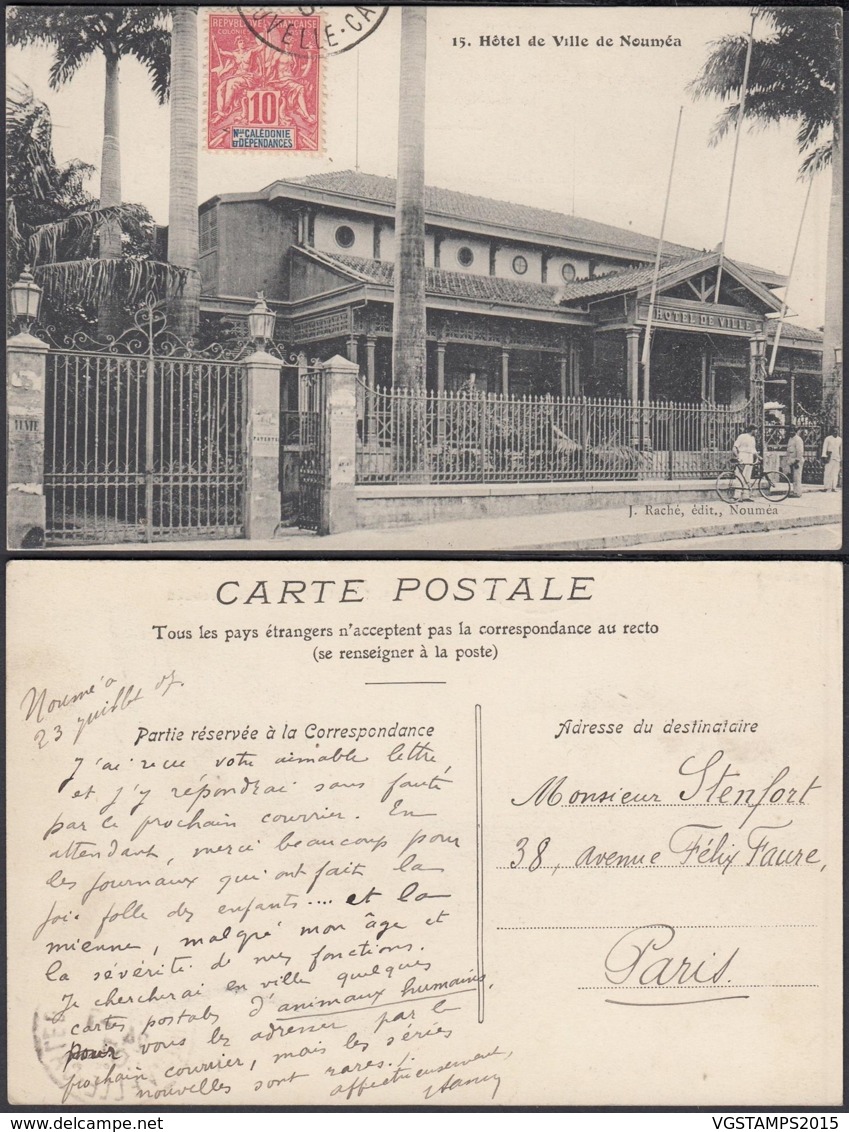 15. Hôtel de Ville de Nouméa
UVELLE-CA
REPUBLIQUE FRANÇAISE
COLONIES
10
Nlle CALÉDONIE
ET DÉPENDANCES
HOTEL DE VILLE
J. Raché, édit., Nouméa
CARTE POSTALE
Tous les pays étrangers n'acceptent pas la correspondance au recto
(se renseigner à la poste)
Nouméa
23 juillet 07.
Partie réservée à la Correspondance
J'ai reçu votre aimable lettre
et j'y répondrai sans faute
par le prochain courrier. En
attendant, merci beaucoup pour
les journaux qui ont fait la
joie folle des enfants.... et la
mienne, malgré mon âge et
la sévérité de mes fonctions.
Je chercherai en ville quelques
cartes postales d'animaux humains,
pour vous les adresser par le
prochain courrier, mais les séries
nouvelles sont rares.
affectueusement,
Adresse du destinataire
Monsieur Stenfort
38, avenue Félix Faure,
Paris.
VGSTAMPS2015